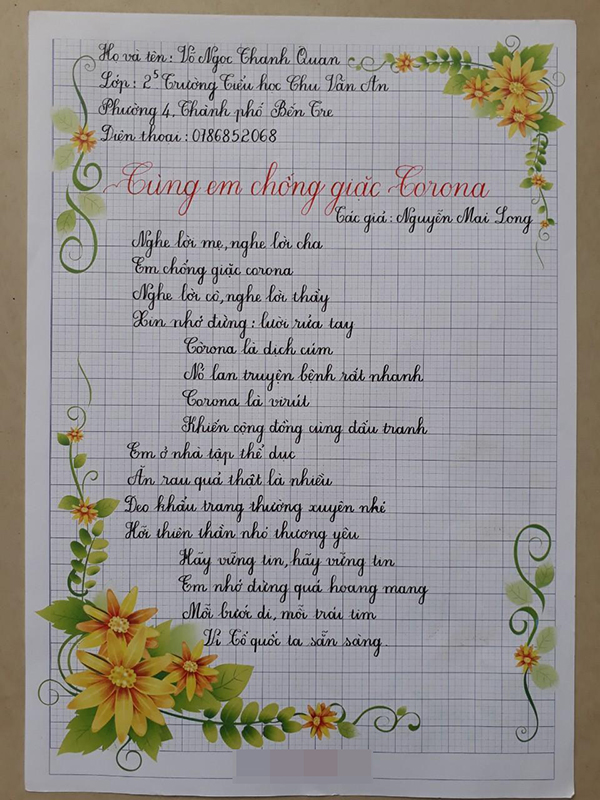 Họ và tên: Võ Ngọc Thanh Quan
Lớp: 2⁵ Trường Tiểu học Chu Văn An
Phường 4, Thành phố Bến Tre
Điện thoại: 0786852068
Cùng em chống giặc Corona
Tác giả: Nguyễn Mai Long
Nghe lời mẹ, nghe lời cha
Em chống giặc corona
Nghe lời cô, nghe lời thầy
Xin nhớ đừng: lười rửa tay
Côrona là dịch cúm
Nó lan truyện bệnh rất nhanh
Corona là virút
Khiến cộng đồng cùng đấu tranh
Em ở nhà tập thể dục
Ăn rau quả thật là nhiều
Đeo khẩu trang thường xuyên nhé
Hỡi thiên thần nhỏ thương yêu
Hãy vững tin, hãy vững tin
Em nhớ đừng quá hoang mang
Mỗi bước đi, mỗi trái tim
Vì Tổ quốc ta sẵn sàng.